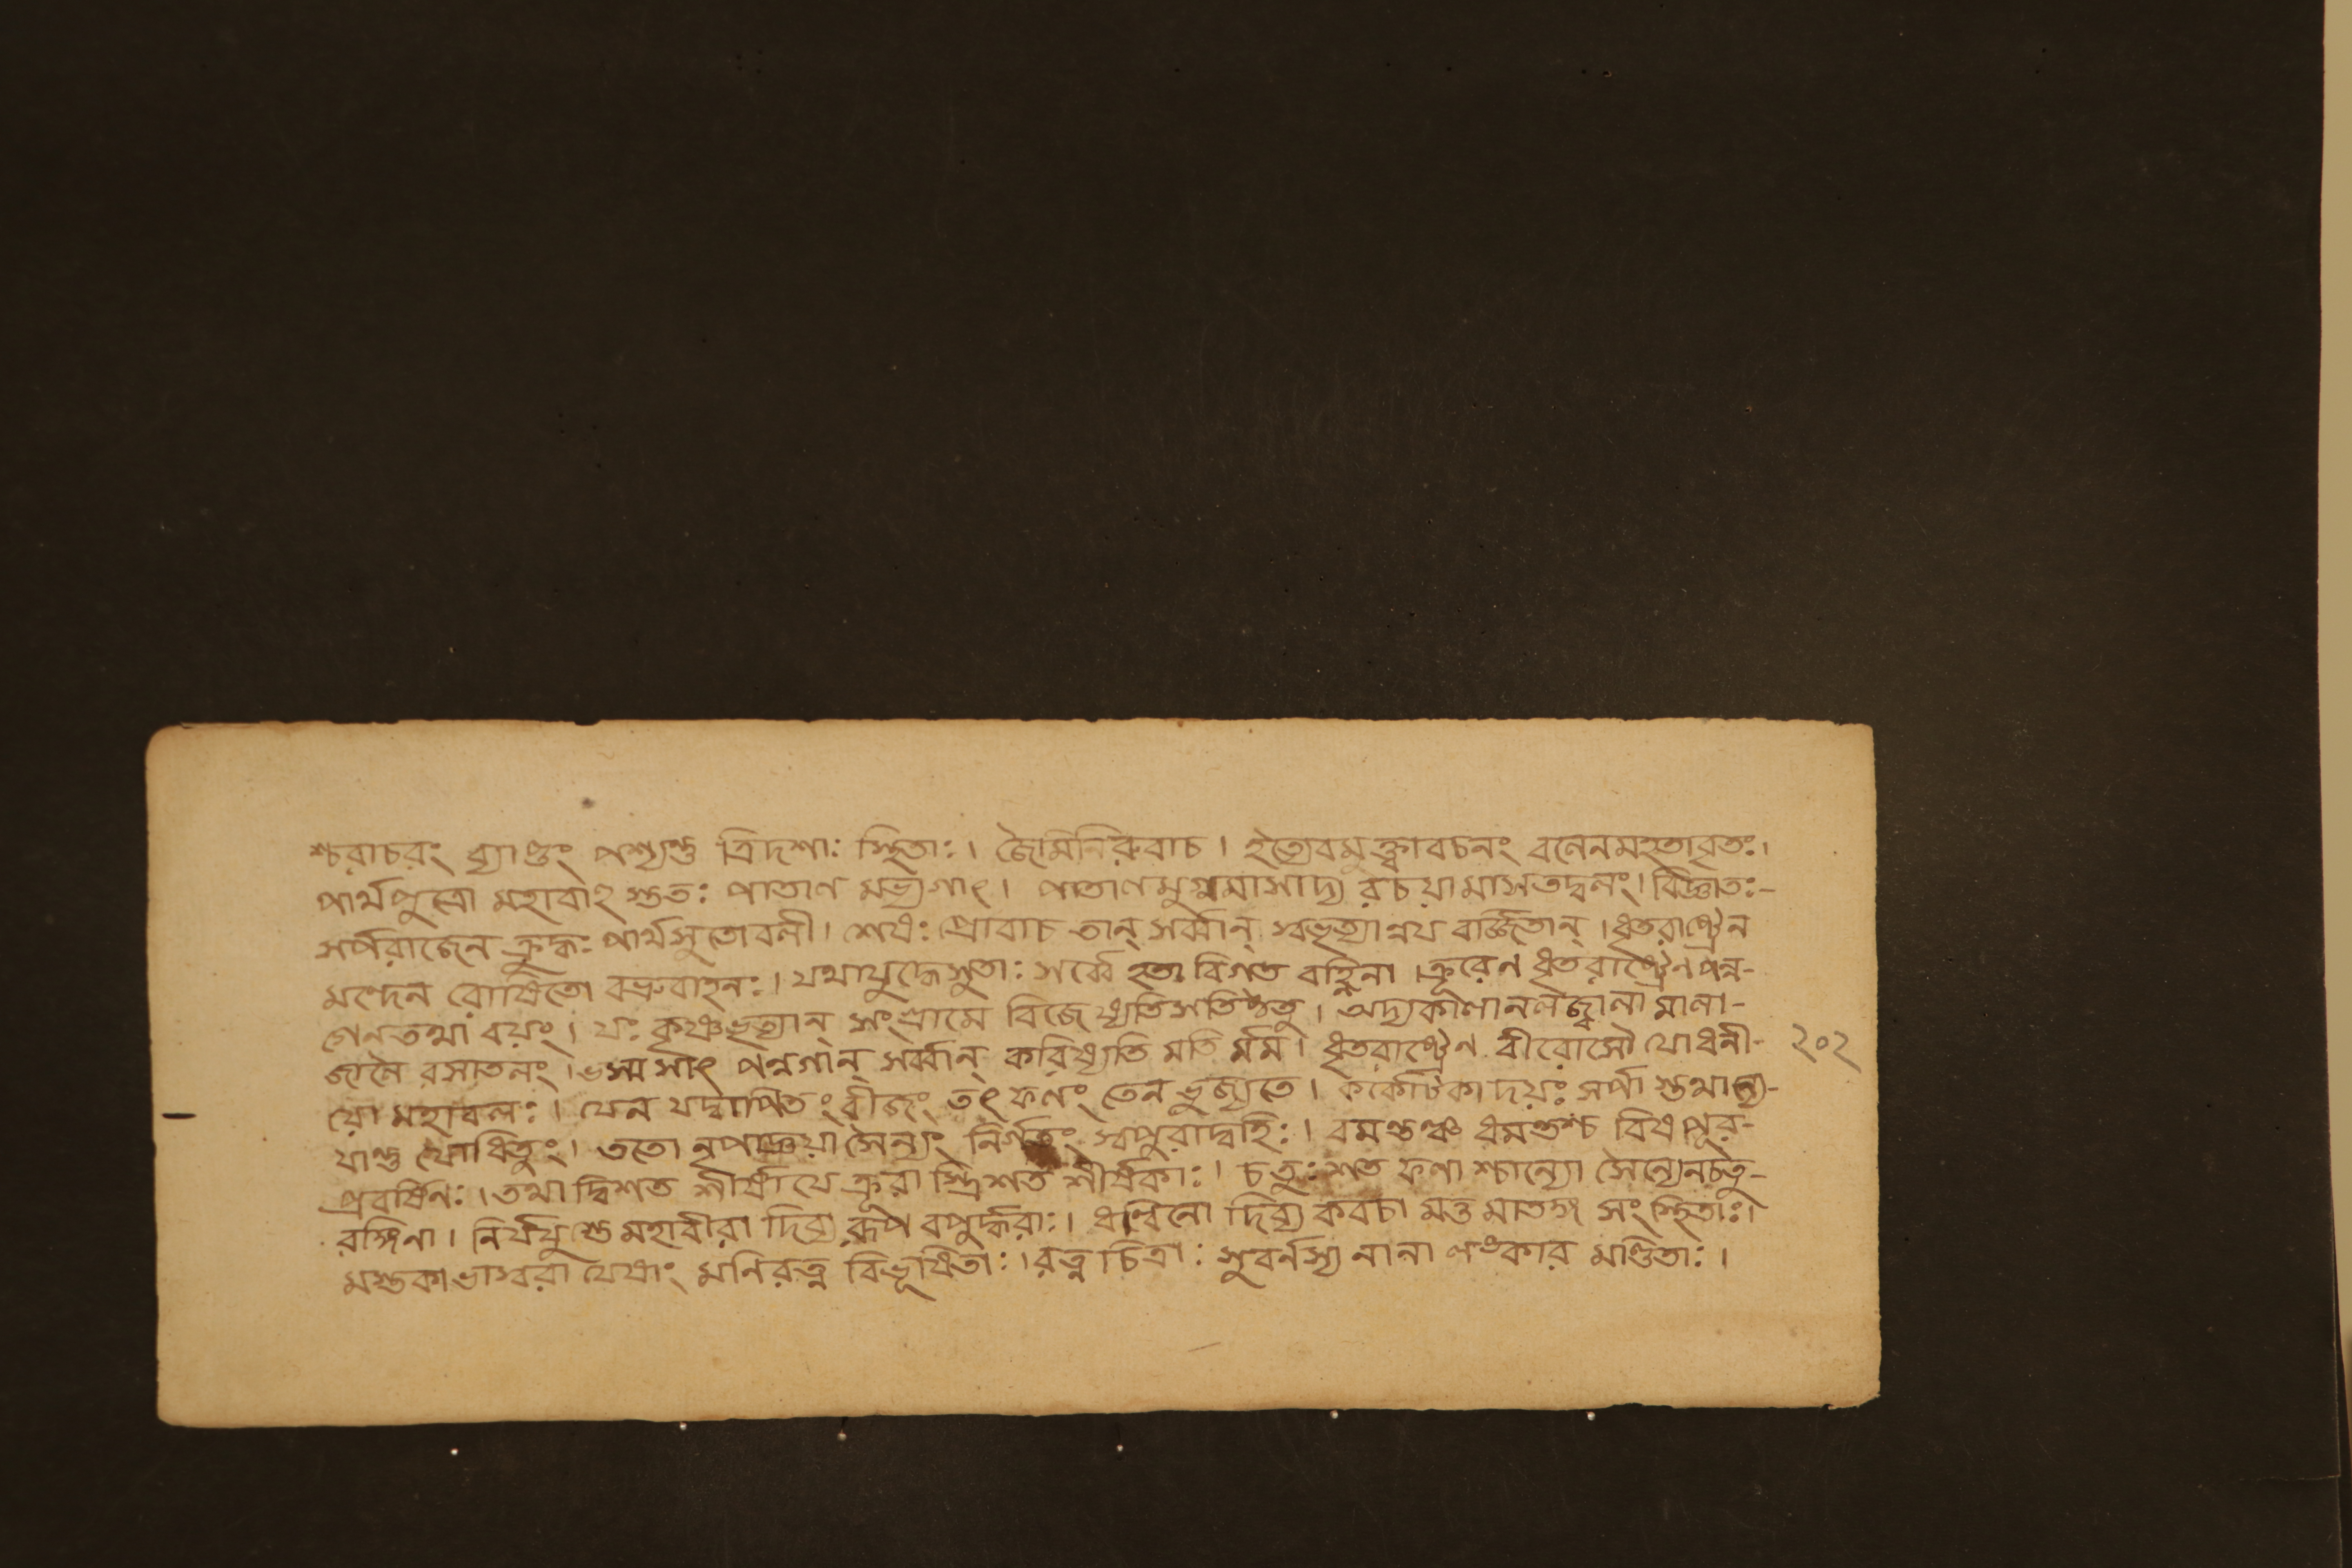 শ্চরাচরং ব্র্যাণ্ডং পশ্যন্তু ত্রিদশাঃ স্থিতাঃ। জৈমিনিরুবাচ। ইত্যেবমুক্ত্বাবচনং বলেনমহতাবৃতঃ।
পার্থপুত্রো মহাবাহু স্ততঃ পাতাল মভ্যগাৎ। পাতালমুগ্রমাসাদ্য রচয়ামাসতদ্বলং। বিজ্ঞাতঃ-
সর্পরাজেন ক্রুদ্ধঃ পার্থসুতোবলী। শেষঃ প্রোবাচ তান্ সর্ব্বান্ স্বভৃত্যান্নয বর্জ্জিতান্। ধৃতরাষ্ট্রেন
মন্দেন রোষিতো বভ্রুবাহনঃ। যথাযুদ্ধেসুতাঃ সর্ব্বে হতা বিগত বহ্নিনা। ক্রূরেণ ধৃতরাষ্ট্রেণপন্ন-
গেনতথা বয়ং। যঃ কৃষ্ণভৃত্যান্ সংগ্রামে বিজেষ্যতিসতিষ্ঠতু। অদ্যকালানলজ্বালা মালা-
জালৈ রসাতলং। ভস্মসাৎ পন্নগান্ সর্ব্বান্ করিষ্যতি মতি র্মম। ধৃতরাষ্ট্রেণ বীরোসৌ যোধনী- ২০২
য়ো মহাবলঃ। যেন যদ্বাপিতং বীজং তৎফলং তেন ভুজ্যতে। কর্কোটকাদয়ঃ সর্পা স্তথান্যে-
যান্তু যোধিতুং। ততো নৃপাজ্ঞয়া সৈন্যং নির্গতং স্বপুরাদ্বহিঃ। বমন্তঞ্চ ধমন্তশ্চ বিষপূর-
প্রবর্ষিণঃ। তথা দ্বিশত শীর্ষাযে ক্রূরা স্ত্রিশত শীর্ষকাঃ। চতুঃশত ফণা শ্চান্যে সৈন্যেনচতু-
রঙ্গিনা। নির্যযুস্তু মহাবীরা দিব্য রূপ বপুর্দ্ধরাঃ। ধন্বিনো দিব্য কবচা মত্ত মাতঙ্গ সংস্থিতাঃ।
মস্তকা ভাস্বরা যেষাং মনিরত্ন বিভূষিতাঃ। রত্ন চিত্রাঃ সুবর্নস্য নানা লংকার মণ্ডিতাঃ।